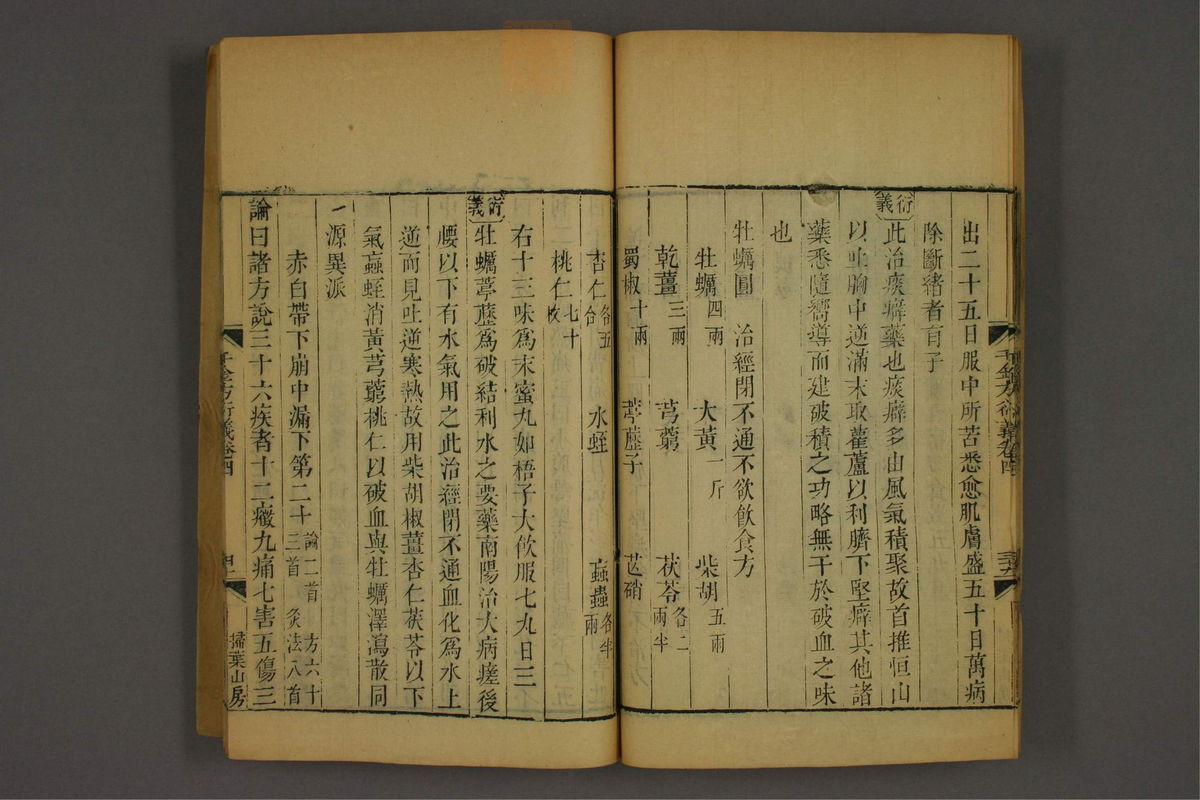 出二十五日服中所苦悉愈肌膚盛五十日萬病
除斷緒者有子
衍義
此治痰癖藥也痰癖多由風氣積聚故首推恒山
以吐胸中逆滿末取藿蘆以利臍下堅癖其他諸
藥悉隨嚮導而建破積之功略無干於破血之味
也
牡蠣圓 治經閉不通不欲飲食方
牡蠣四兩 大黃一斤 柴胡五兩
乾薑三兩 芎藭 茯苓各二兩半
蜀椒十兩 葶藶子 芒硝
杏仁各五合 水蛭 蝱蟲各半兩
桃仁七十枚
右十三味爲末蜜丸如梧子大飲服七丸日三
衍義
牡蠣葶藶爲破結利水之要藥南陽治大病瘥後
腰以下有水氣用之此治經閉不通血化爲水上
逆而見吐逆寒熱故用柴胡椒薑杏仁茯苓以下
氣蝱蛭消黃芎藭桃仁以破血與牡蠣澤瀉散同
一源異派
赤白帶下崩中漏下第二十論二首 方六十三首 灸法八首
論曰諸方說三十六疾者十二癥九痛七害五傷三
千金方衍義卷四
掃葉山房